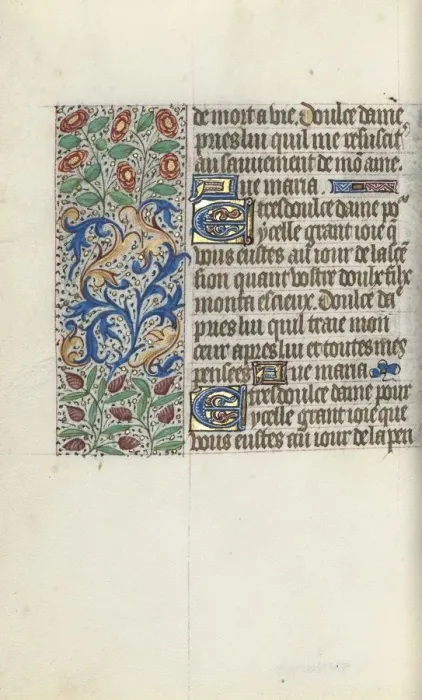 de mort a vie. Doulce dame
pries lui quil me resuscit
au sauuement de mō ame.
Aue maria
E tresdoulce dame po᷑
ycelle grant ioie q̄
vous eustes au iour de lascē
sion quant vostre doulx filz
monta es cieux. Doulce da
pries lui quil traie mon
cuer apres lui et toutes mes
pensees Aue maria
E tresdoulce dame pour
ycelle grant ioie que
vous eustes au iour de la pen